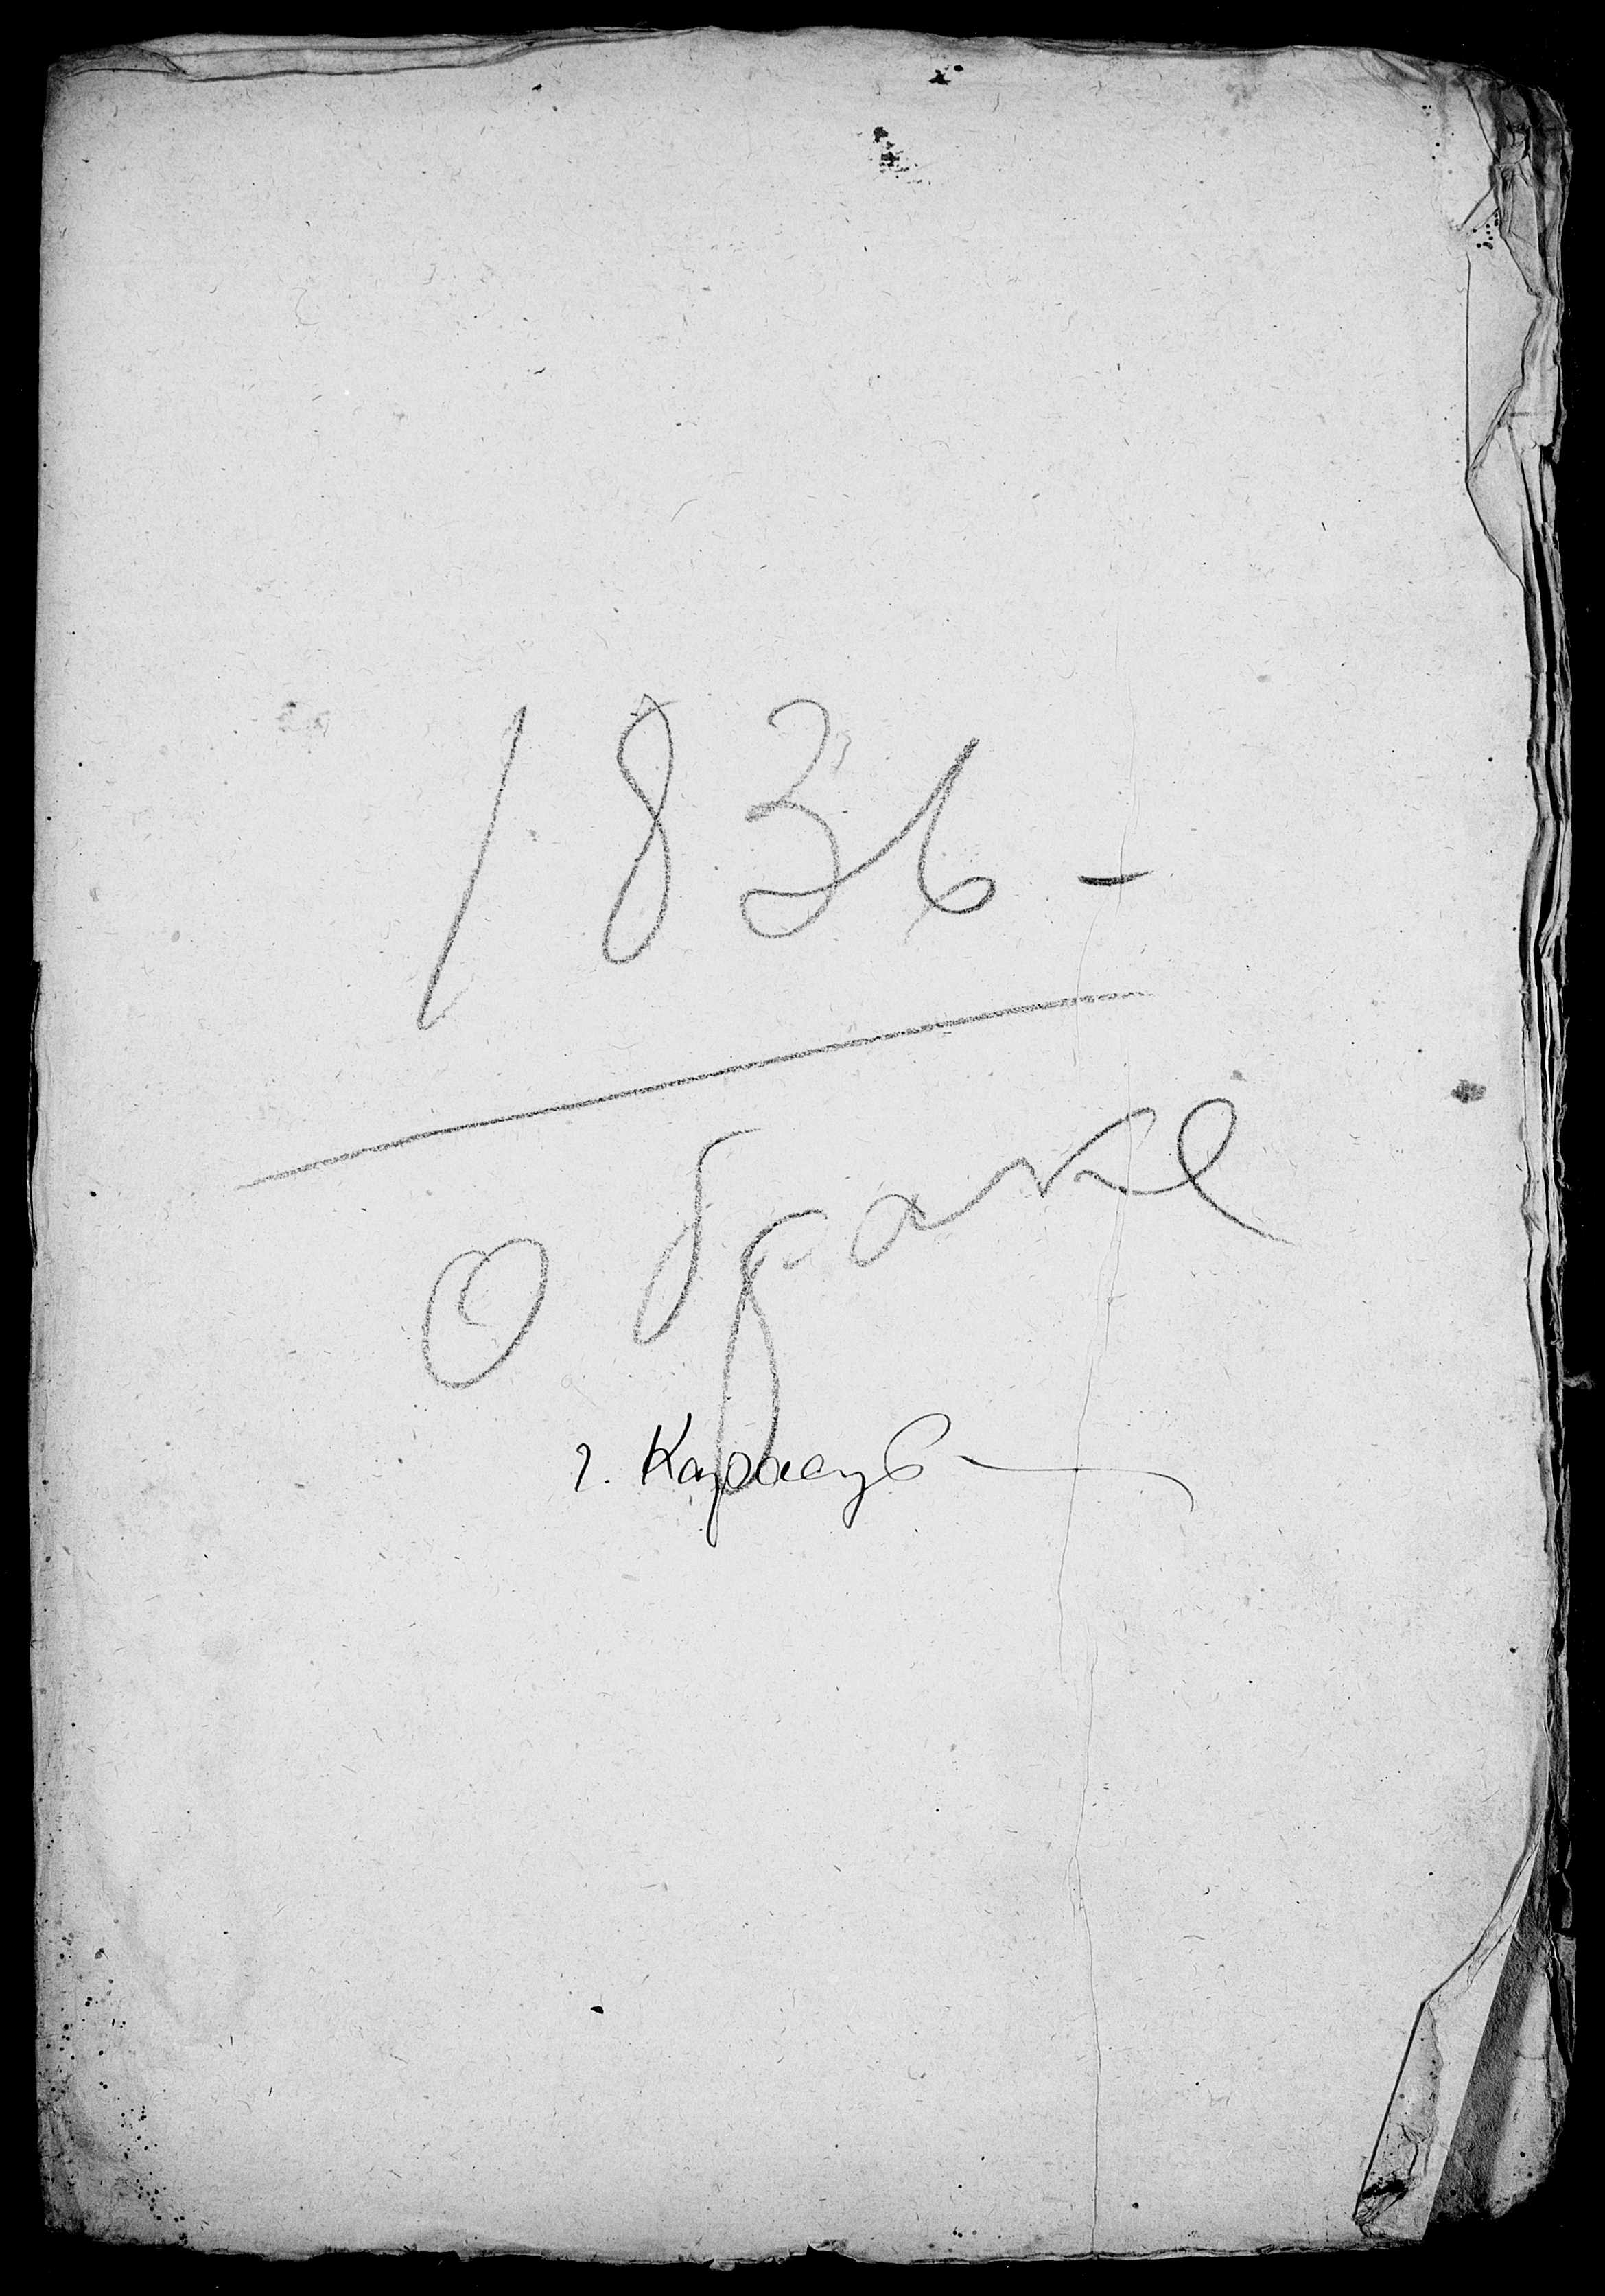 1836 –
О браке
г. Карасуб